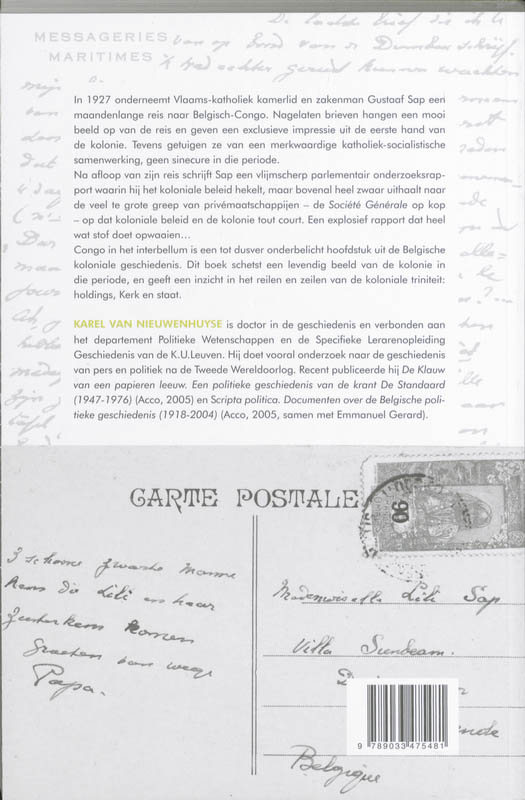 MESSAGERIES
MARITIMES
In 1927 onderneemt Vlaams-katholiek kamerlid en zakenman Gustaaf Sap een
maandenlange reis naar Belgisch-Congo. Nagelaten brieven hangen een mooi
beeld op van de reis en geven een exclusieve impressie uit de eerste hand van
de kolonie. Tevens getuigen ze van een merkwaardige katholiek-socialistische
samenwerking, geen sinecure in die periode.
Na afloop van zijn reis schrijft Sap een vlijmscherp parlementair onderzoeksrap-
port waarin hij het koloniale beleid hekelt, maar bovenal heel zwaar uithaalt naar
de veel te grote greep van privémaatschappijen – de Société Générale op kop
– op dat koloniale beleid en de kolonie tout court. Een explosief rapport dat heel
wat stof doet opwaaien...
Congo in het interbellum is een tot dusver onderbelicht hoofdstuk uit de Belgische
koloniale geschiedenis. Dit boek schetst een levendig beeld van de kolonie in
die periode, en geeft een inzicht in het reilen en zeilen van de koloniale triniteit:
holdings, Kerk en staat.
KAREL VAN NIEUWENHUYSE is doctor in de geschiedenis en verbonden aan
het departement Politieke Wetenschappen en de Specifieke Lerarenopleiding
Geschiedenis van de K.U.Leuven. Hij doet vooral onderzoek naar de geschiedenis
van pers en politiek na de Tweede Wereldoorlog. Recent publiceerde hij De Klauw
van een papieren leeuw. Een politieke geschiedenis van de krant De Standaard
(1947-1976) (Acco, 2005) en Scripta politica. Documenten over de Belgische poli-
tieke geschiedenis (1918-2004) (Acco, 2005, samen met Emmanuel Gerard).
CARTE POSTALE
90
3 schoone zwarte
Lili en haar
Zusterkens komen
Groeten van wege
Papa.
Mademoiselle Lili Sap
Villa Sunbeam.
Belgique
9 789033 475481